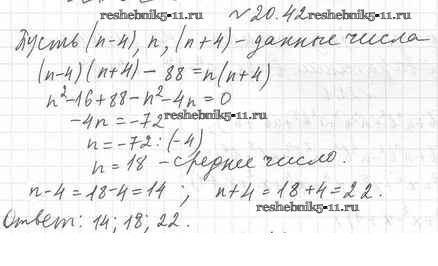 reshebnik5-11.ru №20.42 reshebnik5-11.ru
Пусть (n-4), n, (n+4) - данные числа
(n-4)(n+4) - 88 = n(n+4)
n²-16+88-n²-4n=0
-4n=-72 reshebnik5-11.ru
n=-72:(-4)
n=18 - среднее число.
n-4=18-4=14 ; n+4=18+4=22.
reshebnik5-11.ru
Ответ: 14; 18; 22.